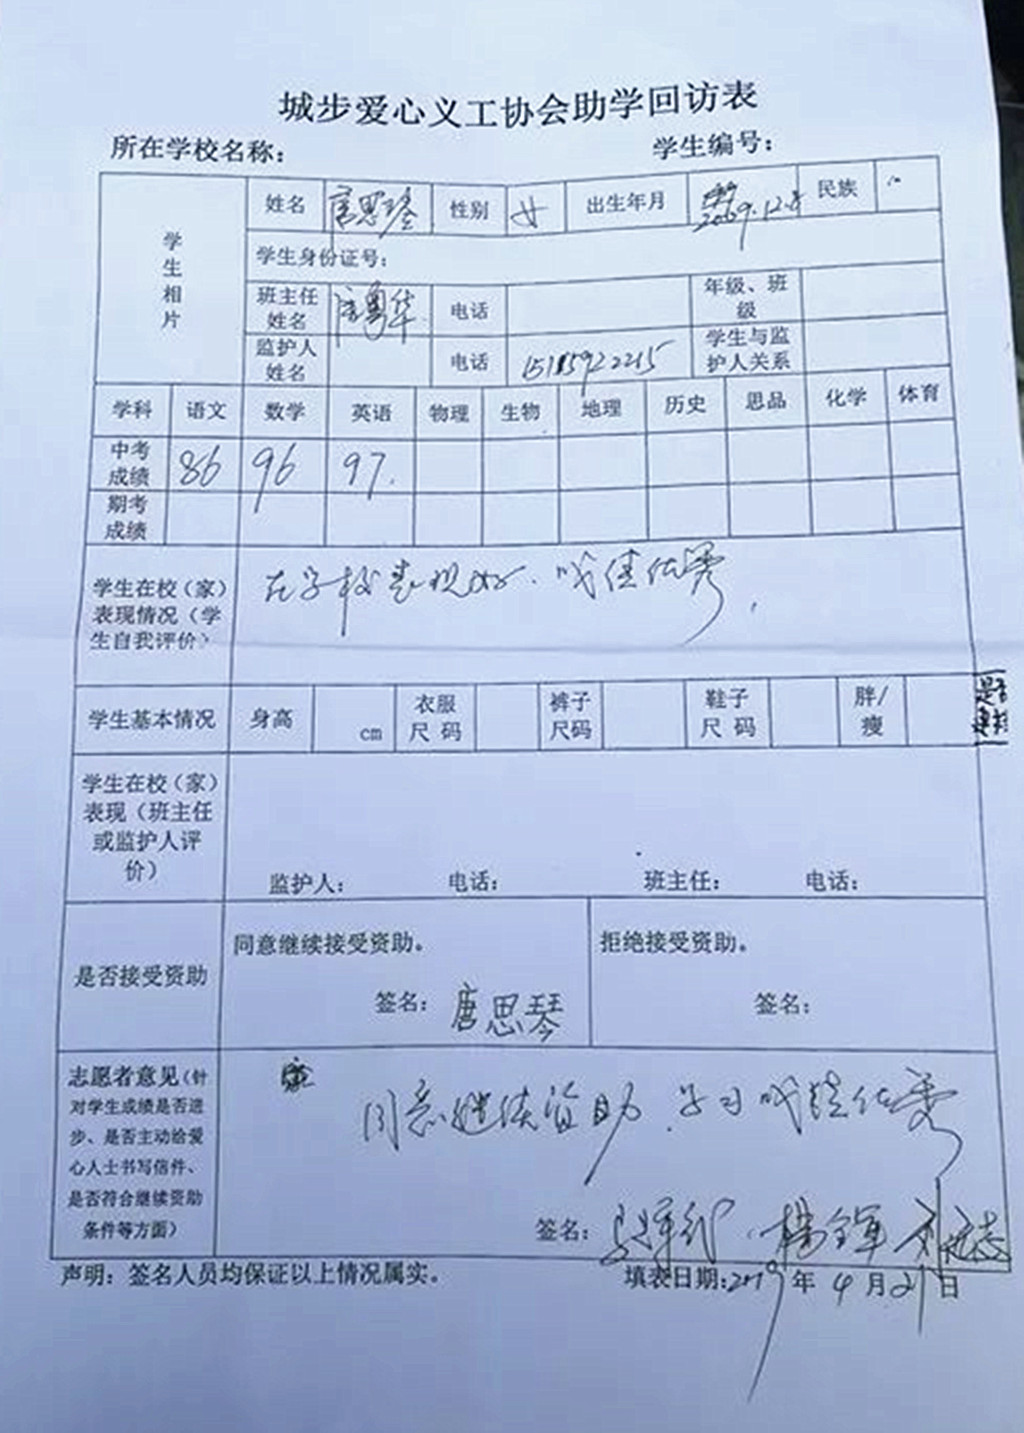 城步爱心义工协会助学回访表
所在学校名称： 学生编号：
学生相片
姓名 唐思琴 性别 女 出生年月 2009.12.8 民族
学生身份证号：
班主任姓名 电话 年级、班级
监护人姓名 电话 15115922215 学生与监护人关系
学科 语文 数学 英语 物理 生物 地理 历史 思品 化学 体育
中考成绩 86 96 97.
期考成绩
学生在校（家）表现情况（学生自我评价） 在学校表现好、成绩优秀，
学生基本情况 身高 cm 衣服尺码 裤子尺码 鞋子尺码 胖/瘦 是否
学生在校（家）表现（班主任或监护人评价）
监护人： 电话： 班主任： 电话：
是否接受资助
同意继续接受资助。 拒绝接受资助。
签名：唐思琴 签名：
志愿者意见（针对学生成绩是否进步、是否主动给爱心人士书写信件、是否符合继续资助条件等方面）
同意继续资助，学习成绩优秀
签名：
声明：签名人员均保证以上情况属实。 填表日期：2019年4月21日